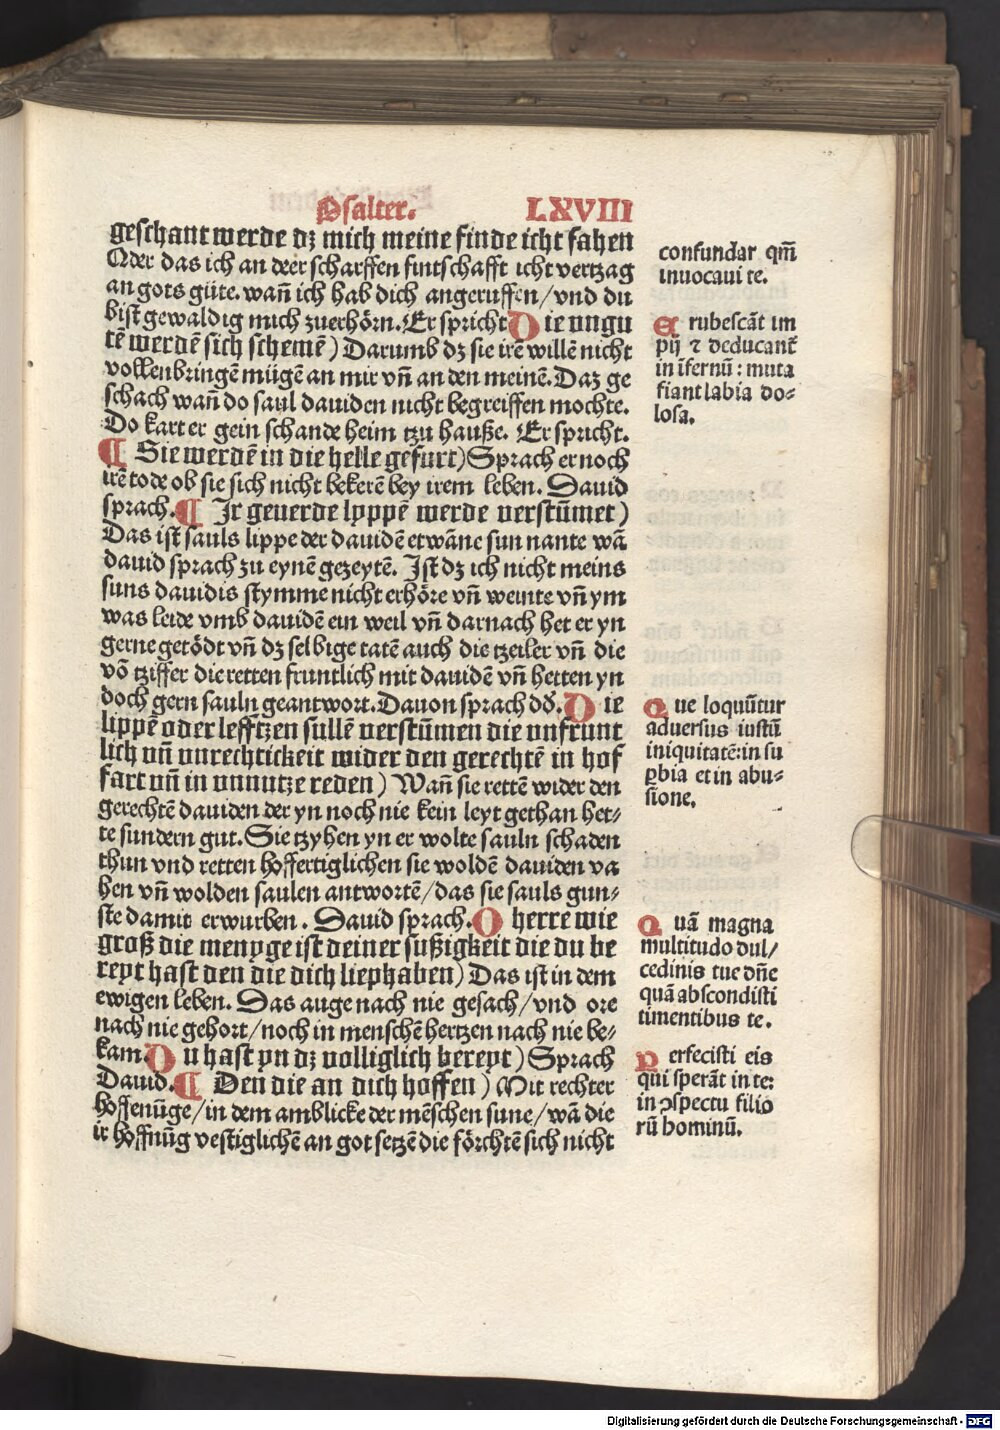 Psalter. LXVIII
geschant werde dz mich meine finde icht fahen
Oder das ich an deer scharffen fintschafft icht vertzag
an gots güte. wañ ich hab dich angeruffen/vnd du
bist gewaldig mich zuerhörn. Er spricht Die vngu
tē werdē sich schemē) Darumb dz sie irē willē nicht
vollenbringē mügē an mir vñ an den meinē. Daz ge
schach wañ do saul dauiden nicht begreiffen mochte.
Do kart er gein schande heim tzu hauße. Er spricht.
¶ Sie werdē in die helle gefurt) Sprach er noch
irē tode ob sie sich nicht bekerē bey irem leben. Dauid
sprach. ¶ Ir geuerde lyppē werde verstūmet)
Das ist sauls lippe der dauidē etwāne sun nante wā
dauid sprach zu eynē gezeytē. Ist dz ich nicht meins
suns dauidis stymme nicht erhöre vñ weinte vñ ym
was leide vmb dauidē ein weil vñ darnach het er yn
gerne getödt vñ dz selbige tatē auch die tzeiler vñ die
vō tziffer die retten fruntlich mit dauidē vñ hetten yn
doch gern sauln geantwort. Dauon sprach dd. Die
lippē oder lefftzen sullē verstūmen die vnfrunt
lich vñ vnrechtickeit wider den gerechtē in hof
fart vñ in vnnutze reden) Wañ sie rettē wider den
gerechtē dauiden der yn noch nie kein leyt gethan het-
te sundern gut. Sie tzyhen yn er wolte sauln schaden
thun vnd retten hoffertiglichen sie woldē dauiden va
hen vñ wolden saulen antwortē/das sie sauls gun-
ste damit erwurben. Dauid sprach. O herre wie
groß die menyge ist deiner sußigkeit die du be
reyt hast den die dich liephaben) Das ist in dem
ewigen leben. Das auge nach nie gesach/vnd ore
nach nie gehort/noch in menschē hertzen nach nie be-
kam. Du hast yn dz volliglich bereyt) Sprach
Dauid. ¶ Den die an dich hoffen) Mit rechter
hoffenūge/in dem amblicke der mēschen sune/wā die
ir hoffnūg vestiglichē an got setzē die förchtē sich nicht
confundar qm̄
inuocaui te.
Erubescāt im
pij ⁊ deducant̄
in īfernū: muta
fiant labia do-
losa.
Que loquūtur
aduersus iustū
iniquitatē: in su
ꝑbia et in abu-
sione.
Quā magna
multitudo dul/
cedinis tue dn̄e
quā abscondisti
timentibus te.
Perfecisti eis
qui sperāt in te:
in ↄspectu filio
rū hominū.
Digitalisierung gefördert durch die Deutsche Forschungsgemeinschaft - DFG